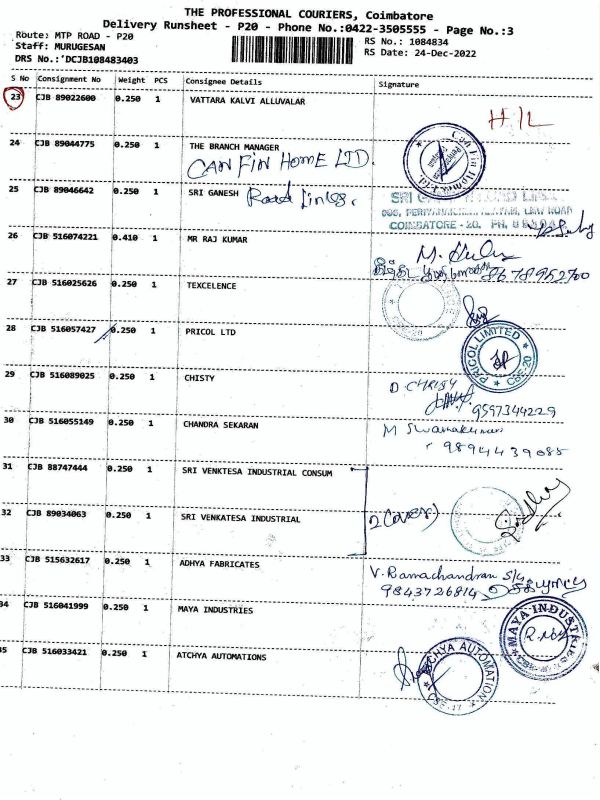 THE PROFESSIONAL COURIERS, Coimbatore
Delivery Runsheet - P20 - Phone No.:0422-3505555 - Page No.:3
Route: MTP ROAD - P20
Staff: MURUGESAN
DRS No.:'DCJB108483403
RS No.: 1084834
RS Date: 24-Dec-2022
S No Consignment No Weight PCS Consignee Details Signature
23 CJB 89022600 0.250 1 VATTARA KALVI ALLUVALAR H/L
24 CJB 89044775 0.250 1 THE BRANCH MANAGER
CAN FIN HOME LTD.
25 CJB 89046642 0.250 1 SRI GANESH Road Lines.
COIMBATORE - 20. PH.
26 CJB 516074221 0.410 1 MR RAJ KUMAR
27 CJB 516025626 0.250 1 TEXCELENCE
CBE-20
28 CJB 516057427 0.250 1 PRICOL LTD
PRICOL LIMITED
CBE-20
29 CJB 516089025 0.250 1 CHISTY D CHRISTY
9597344229
30 CJB 516055149 0.250 1 CHANDRA SEKARAN M Swarnakumari
9894439085
31 CJB 88747444 0.250 1 SRI VENKTESA INDUSTRIAL CONSUM
32 CJB 89034063 0.250 1 SRI VENKATESA INDUSTRIAL 2 Covers)
33 CJB 515632617 0.250 1 ADHYA FABRICATES V. Ramachandran S/G
9843726814
34 CJB 516041999 0.250 1 MAYA INDUSTRIES
MAYA INDUSTRIES
35 CJB 516033421 0.250 1 ATCHYA AUTOMATIONS
ATCHYA AUTOMATION
CBE-17